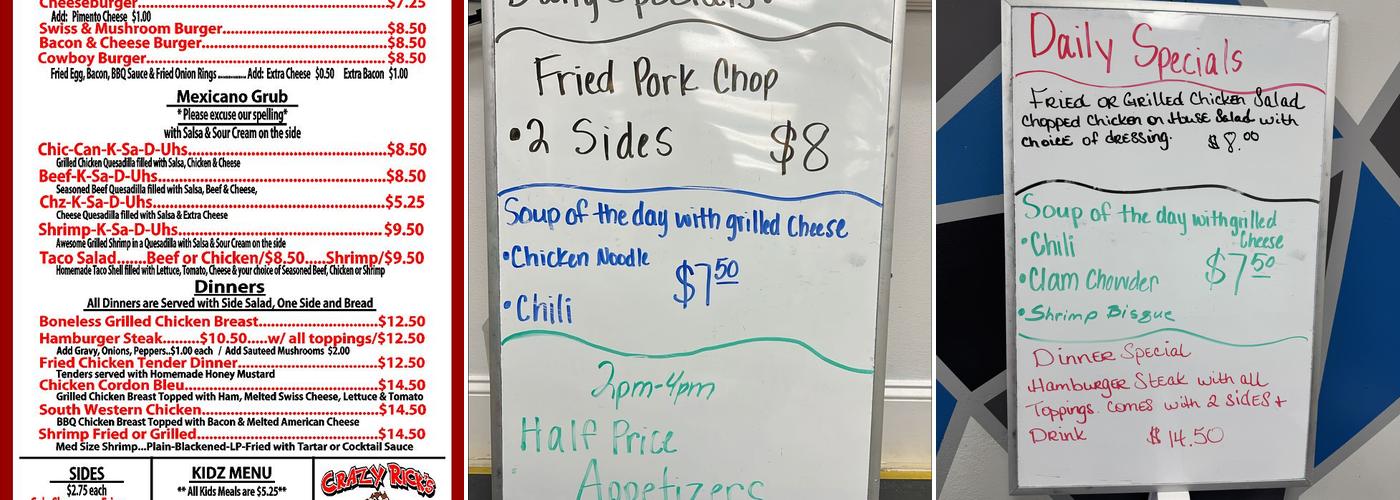 Cheeseburger..............................$7.25
Add: Pimento Cheese $1.00
Swiss & Mushroom Burger..............................$8.50
Bacon & Cheese Burger..............................$8.50
Cowboy Burger..............................$8.50
Fried Egg, Bacon, BBQ Sauce & Fried Onion Rings ............ Add: Extra Cheese $0.50 Extra Bacon $1.00
Mexicano Grub
*Please excuse our spelling*
with Salsa & Sour Cream on the side
Chic-Can-K-Sa-D-Uhs..............................$8.50
Grilled Chicken Quesadilla filled with Salsa, Chicken & Cheese
Beef-K-Sa-D-Uhs..............................$8.50
Seasoned Beef Quesadilla filled with Salsa, Beef & Cheese,
Chz-K-Sa-D-Uhs..............................$5.25
Cheese Quesadilla filled with Salsa & Extra Cheese
Shrimp-K-Sa-D-Uhs..............................$9.50
Awesome Grilled Shrimp in a Quesadilla with Salsa & Sour Cream on the side
Taco Salad.......Beef or Chicken/$8.50.....Shrimp/$9.50
Homemade Taco Shell filled with Lettuce, Tomato, Cheese & your choice of Seasoned Beef, Chicken or Shrimp
Dinners
All Dinners are Served with Side Salad, One Side and Bread
Boneless Grilled Chicken Breast..............................$12.50
Hamburger Steak.........$10.50.....w/ all toppings/$12.50
Add Gravy, Onions, Peppers..$1.00 each / Add Sauteed Mushrooms $2.00
Fried Chicken Tender Dinner..............................$12.50
Tenders served with Homemade Honey Mustard
Chicken Cordon Bleu..............................$14.50
Grilled Chicken Breast Topped with Ham, Melted Swiss Cheese, Lettuce & Tomato
South Western Chicken..............................$14.50
BBQ Chicken Breast Topped with Bacon & Melted American Cheese
Shrimp Fried or Grilled..............................$14.50
Med Size Shrimp...Plain-Blackened-LP-Fried with Tartar or Cocktail Sauce
SIDES
$2.75 each
KIDZ MENU
** All Kids Meals are $5.25**
CRAZY RICK'S
Daily Specials!
Fried Pork Chop
•2 Sides $8
Soup of the day with grilled Cheese
•Chicken Noodle
$7.50
•Chili
2pm-4pm
Half Price
Appetizers
Daily Specials
Fried or Grilled Chicken Salad
Chopped Chicken on House Salad with
choice of dressing. $8.00
Soup of the day with grilled
Cheese
•Chili
$7.50
•Clam Chowder
•Shrimp Bisque
Dinner Special
Hamburger Steak with all
Toppings. comes with 2 sides +
Drink $14.50